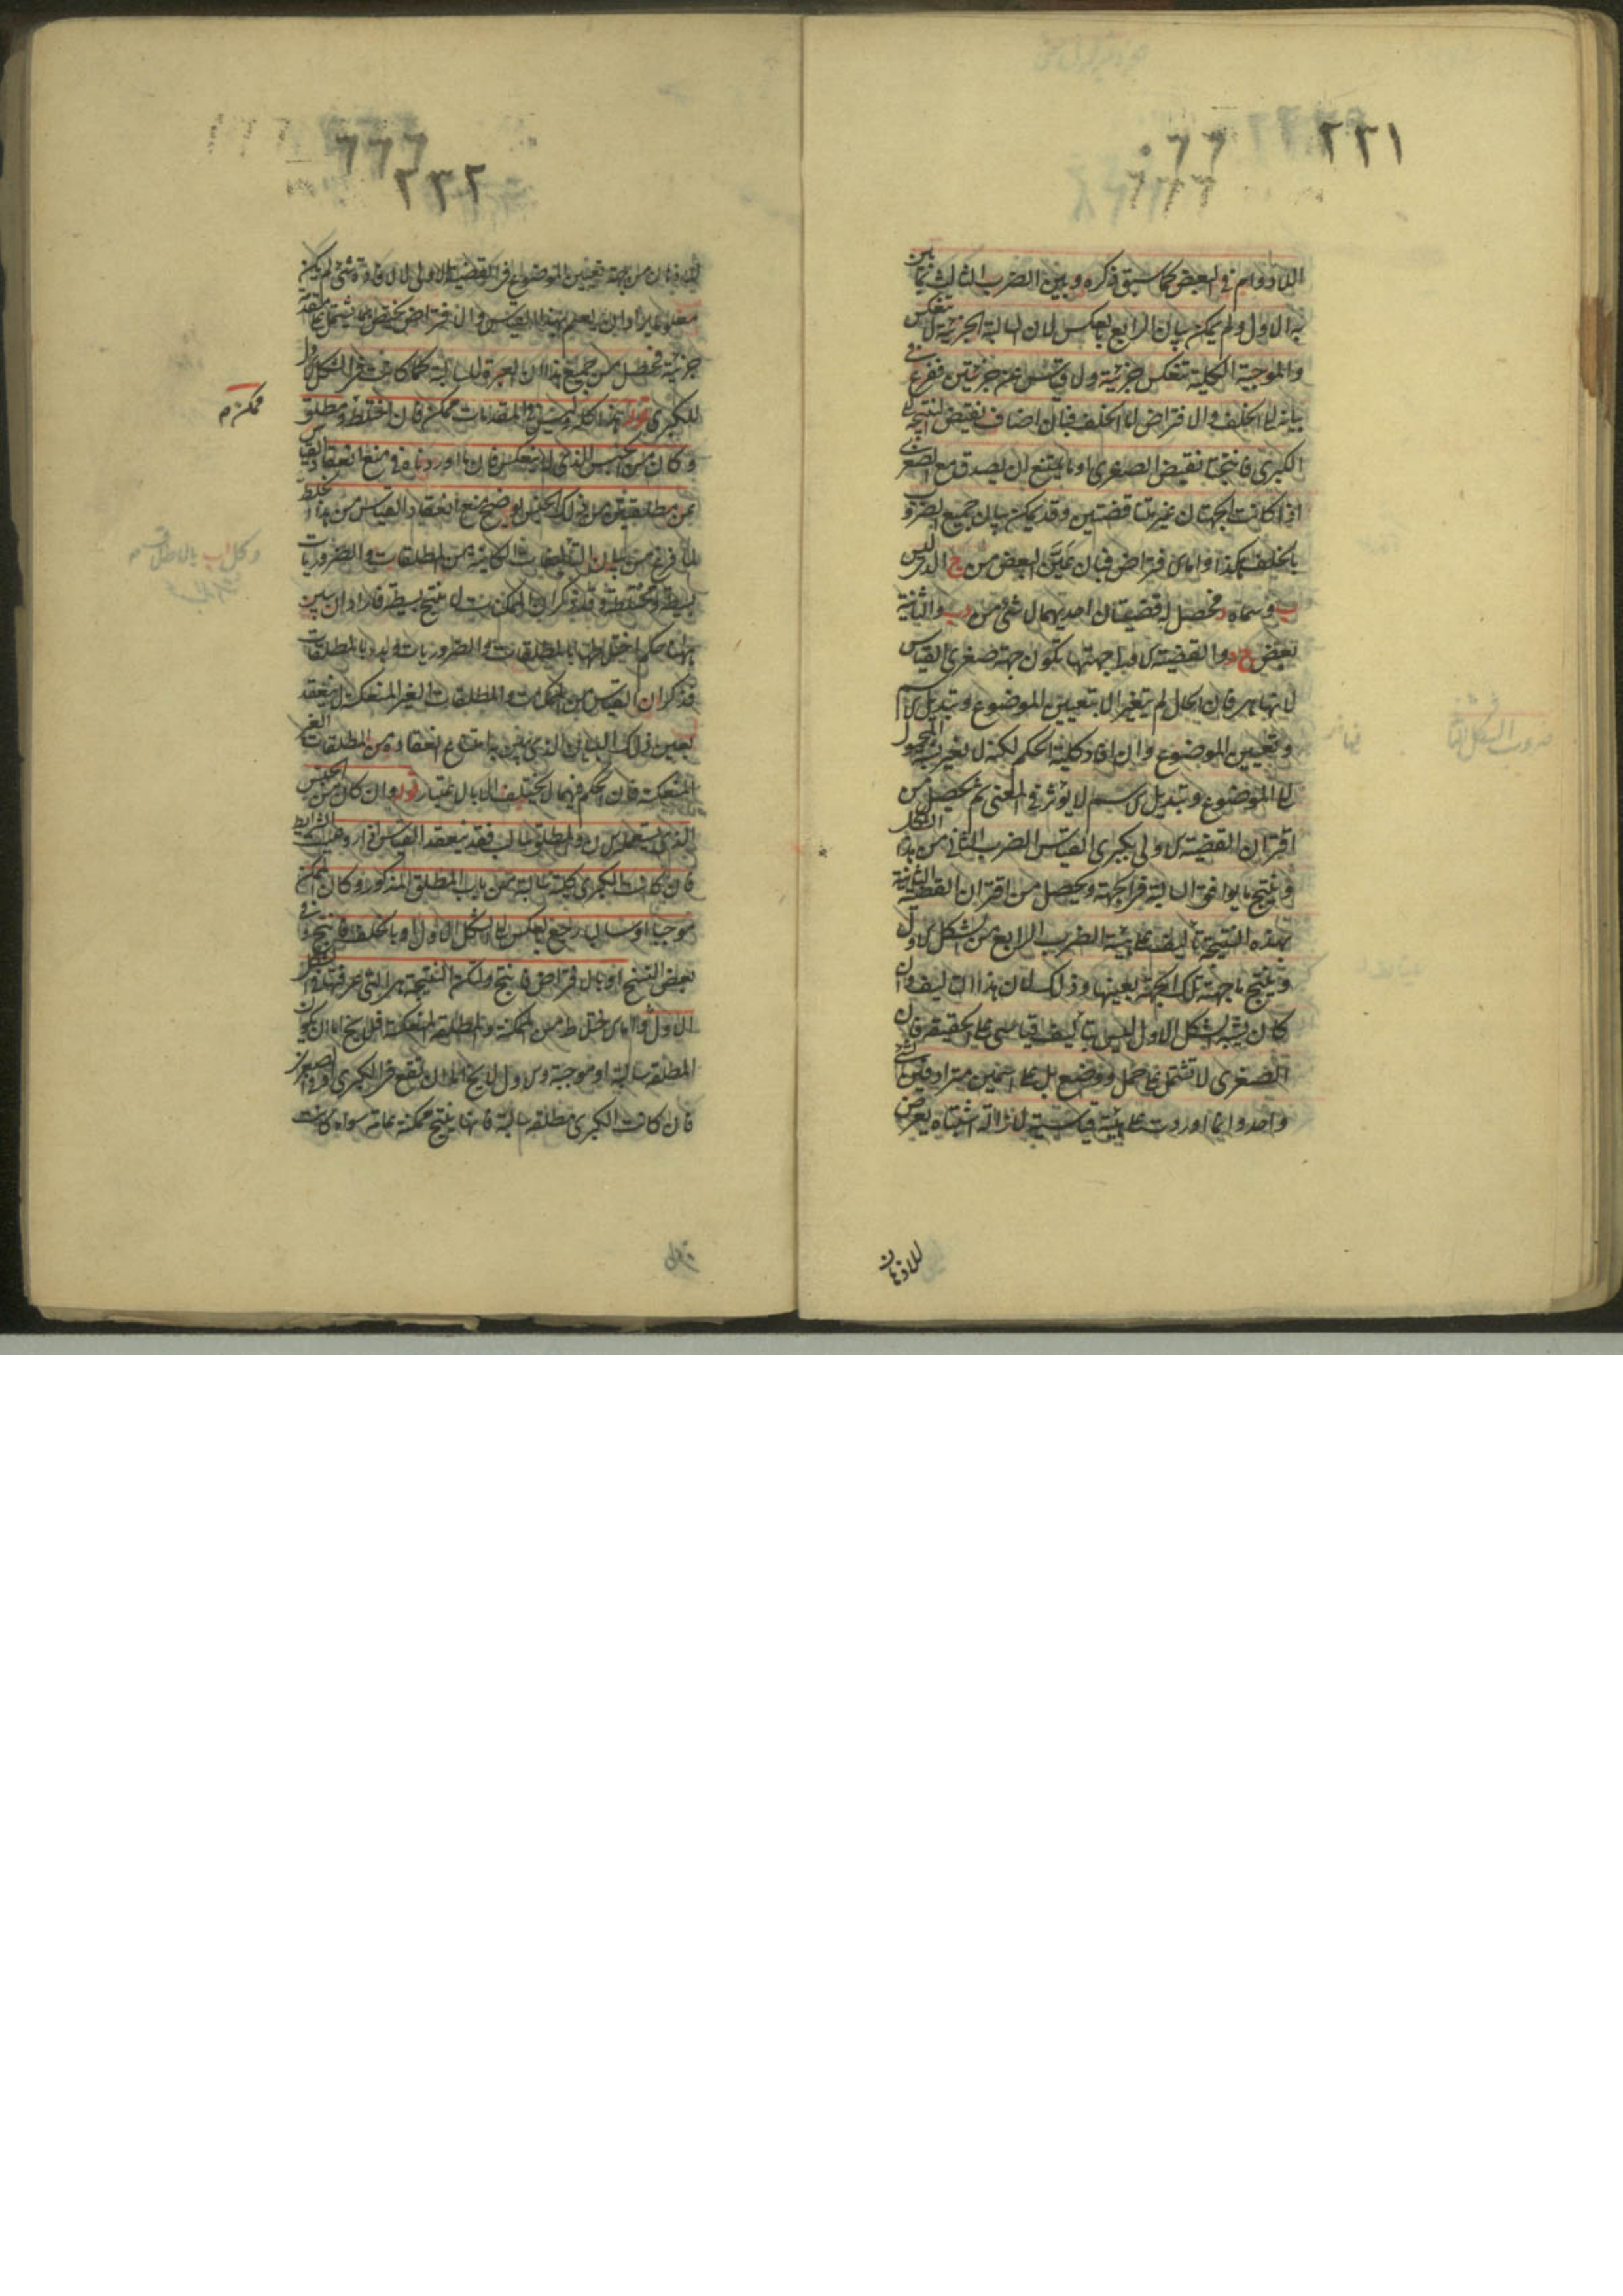 ٢٢١
اللادوام في البعض كما سبق ذكره وبين الضرب الثالث بما بين
به الاول ولم يمكن بيان الرابع بالعكس لان السالبة الجزئية لا تنعكس
والموجبة الكلية تنعكس جزئية ولا قياس عن جزئيتين ففزع في
بيانه الى الخلف والافتراض اما الخلف فبان اضاف نقيض النتيجة الى
الكبرى فانتجتا نقيض الصغرى او ما يمتنع ان يصدق مع الصغرى
اذا كانت الجهتان غير متناقضتين وقد يمكن بيان جميع الضروب
بالخلف هكذا واما الافتراض فبان عين البعض من ج الذي ليس
ب وسماه د فحصل له قضيتان احديهما لا شئ من د ب والثانية
بعض ج د والقضية الاولى جهتها تكون جهة صغرى القياس
لانها هي فان الحال لم يتغير الا بتعيين الموضوع وتبديل الاسم
وتعيين الموضوع وان افاد كلية الحكم لكنه لا يغير نسبة المحمول
الى الموضوع وتبديل الاسم لا يؤثر في المعنى ثم يحصل من
اقتران القضية الاولى بكبرى القياس الضرب الثاني من هذا الشكل
وينتج ما يوافق السالبة في الجهة ويحصل من اقتران القضية الثانية
بهذه النتيجة تأليف على هيئة الضرب الرابع من الشكل الاول
وينتج ما جهته تلك الجهة بعينها وذلك لان هذا التأليف وان
كان يشبه الشكل الاول ليس بتأليف قياسي على الحقيقة فان
الصغرى لا تشتمل على حمل ووضع بل على اسمين مترادفين لشئ
واحد وانما اوردت على هيئة قياسية لازالة اشتباه يعرض
للاذهان
٢٢٢
للاذهان من جهة تعيين الموضوع في القضية الاولى لا لافادة شئ لم يكن
معلوما وارادان يعلم بهذا القياس والافتراض يختص بما يشتمل على مقدمة
جزئية فحصل من جميع هذا ان العبرة للسالبة كما كانت في الشكل الاول
للكبرى قوله هذا كله وليس في المقدمات ممكن فان اختلط ممكن ومطلق
وكان من الجنس الذي لا ينعكس فان ما اوردناه في منع انعقاد القياس
عن مطلقتين من ذلك الجنس يوضح منع انعقاد القياس من هذا الخلط
لما فرغ من بيان التأليفات الكائنة من المطلقات والضروريات
بسيطة ومختلطة وقد ذكر ان الممكنات لا تنتج بسيطة فاراد ان يبين
ههنا حكم اختلاطها بالمطلقات والضروريات وبدء بالمطلقات
فذكر ان القياس من الممكنات والمطلقات الغير المنعكسة لا ينعقد
بعين ذلك البيان الذي بين به امتناع انعقاده من المطلقات الغير
المنعكسة فان الحكم فيهما لا يختلف الا بالاعتبار قوله وان كان من الجنس
الذي يستعمل الان والمطلق سالب فقد ينعقد القياس اذا روعيت الشرايط
فان كانت الكبرى كلية سالبة من باب المطلق المذكور وكان الممكن
موجبا او سالبا رجع بالعكس الى الشكل الاول او بالخلف فانتج في
بعض النسخ او بالافتراض فانتج ولكن النتيجة هي التي عرفتها في الشكل
الاول اما الاختلاط من الممكنة والمطلقة المنعكسة فلا يخ اما ان يكون
المطلقة سالبة او موجبة والاول لا يخ اما ان تقع في الكبرى او في الصغرى
فان كانت الكبرى مطلقة سالبة فانها ينتج ممكنة عامة سواء كانت